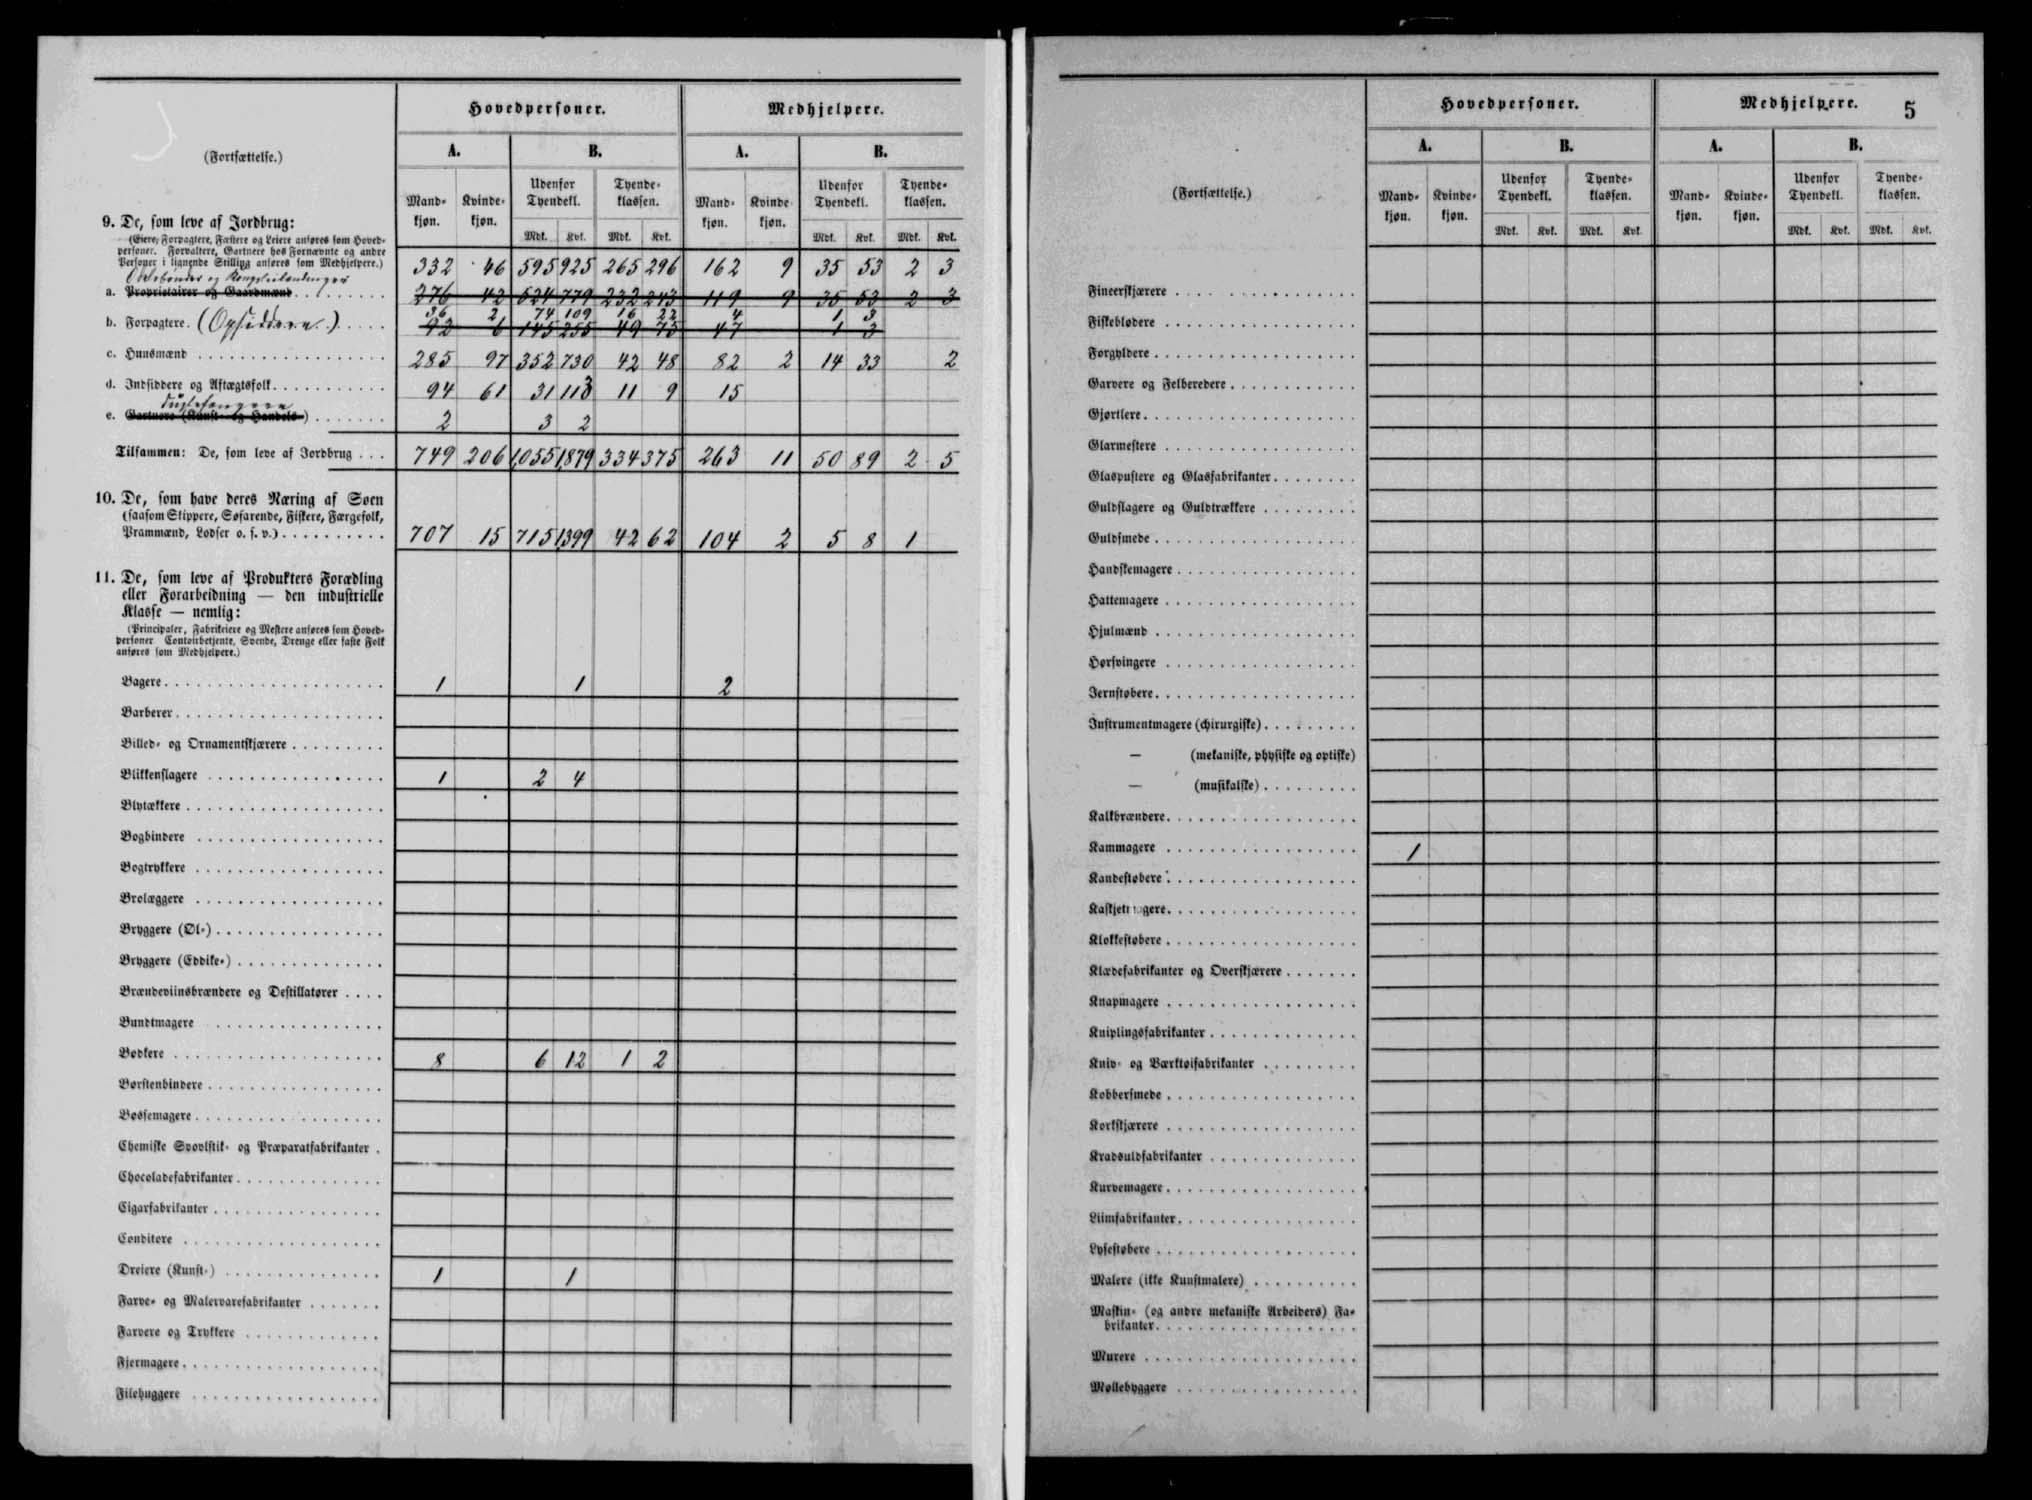 (Fortsættelse.)
Hovedpersoner. Medhjelpere.
A. B. A. B.
Mandkjøn. Kvindekjøn. Udenfor Tyendekl. Tyendeklassen. Mandkjøn. Kvindekjøn. Udenfor Tyendekl. Tyendeklassen.
Mdk. Kvk. Mdk. Kvk. Mdk. Kvk. Mdk. Kvk.
9. De, som leve af Jordbrug:
(Eiere, Forpagtere, Fæstere og Leiere anføres som Hoved-
personer. Forvaltere, Gartnere hos Fornævnte og andre
Personer i lignende Stilling anføres som Medhjelpere.)
332 46 595 925 265 296 162 9 35 53 2 3
a. Proprietairer og Gaardmænd 276 42 524 779 232 243 119 9 35 53 2 3
36 2 74 109 16 22 4 1 3
b. Forpagtere. (Opsiddere.) 92 6 145 255 49 75 47 1 3
c. Huusmænd 285 97 352 730 42 48 82 2 14 33 2
d. Indsiddere og Aftægtsfolk 94 61 31 113 11 9 15
fuglefangere
e. Gartnere (Kunst- og Handels-) 2 3 2
Tilsammen: De, som leve af Jordbrug 749 206 1,055 1,879 334 375 263 11 50 89 2 5
10. De, som have deres Næring af Søen
(saasom Skippere, Søfarende, Fiskere, Færgefolk,
Prammænd, Lodser o. s. v.) 707 15 715 1,399 42 62 104 2 5 8 1
11. De, som leve af Produkters Forædling
eller Forarbeidning — den industrielle
Klasse — nemlig:
(Principaler, Fabrikeiere og Mestere anføres som Hoved-
personer. Contoirbetjente, Svende, Drenge eller faste Folk
anføres som Medhjelpere.)
Bagere 1 1 2
Barberer
Billed- og Ornamentskjærere
Blikkenslagere 1 2 4
Blytækkere
Bogbindere
Bogtrykkere
Brolæggere
Bryggere (Øl-)
Bryggere (Eddike-)
Brændeviinsbrændere og Destillatører
Bundtmagere
Bødkere 8 6 12 1 2
Børstenbindere
Bøssemagere
Chemiske Svovlstik- og Præparatfabrikanter
Chocoladefabrikanter
Cigarfabrikanter
Conditore
Dreiere (Kunst-) 1 1
Farve- og Malervarefabrikanter
Farvere og Trykkere
Fjermagere
Filehuggere
5
(Fortsættelse.)
Hovedpersoner. Medhjelpere.
A. B. A. B.
Mandkjøn. Kvindekjøn. Udenfor Tyendekl. Tyendeklassen. Mandkjøn. Kvindekjøn. Udenfor Tyendekl. Tyendeklassen.
Mdk. Kvk. Mdk. Kvk. Mdk. Kvk. Mdk. Kvk.
Fineerskjærere
Fiskeblødere
Forgyldere
Garvere og Felberedere
Gjørtlere
Glarmestere
Glaspustere og Glasfabrikanter
Guldslagere og Guldtrækkere
Guldsmede
Handskemagere
Hattemagere
Hjulmænd
Hørsvingere
Jernstøbere
Instrumentmagere (chirurgiske)
— (mekaniske, physiske og optiske)
— (musikalske)
Kalkbrændere
Kammagere 1
Kandestøbere
Kaskjetmagere
Klokkestøbere
Klædefabrikanter og Overskjærere
Knapmagere
Kniplingsfabrikanter
Kniv- og Værktøifabrikanter
Kobbersmede
Korkskjærere
Kradsuldfabrikanter
Kurvemagere
Liimfabrikanter
Lysestøbere
Malere (ikke Kunstmalere)
Maskin- (og andre mekaniske Arbeiders) Fa-
brikanter
Murere
Møllebyggere